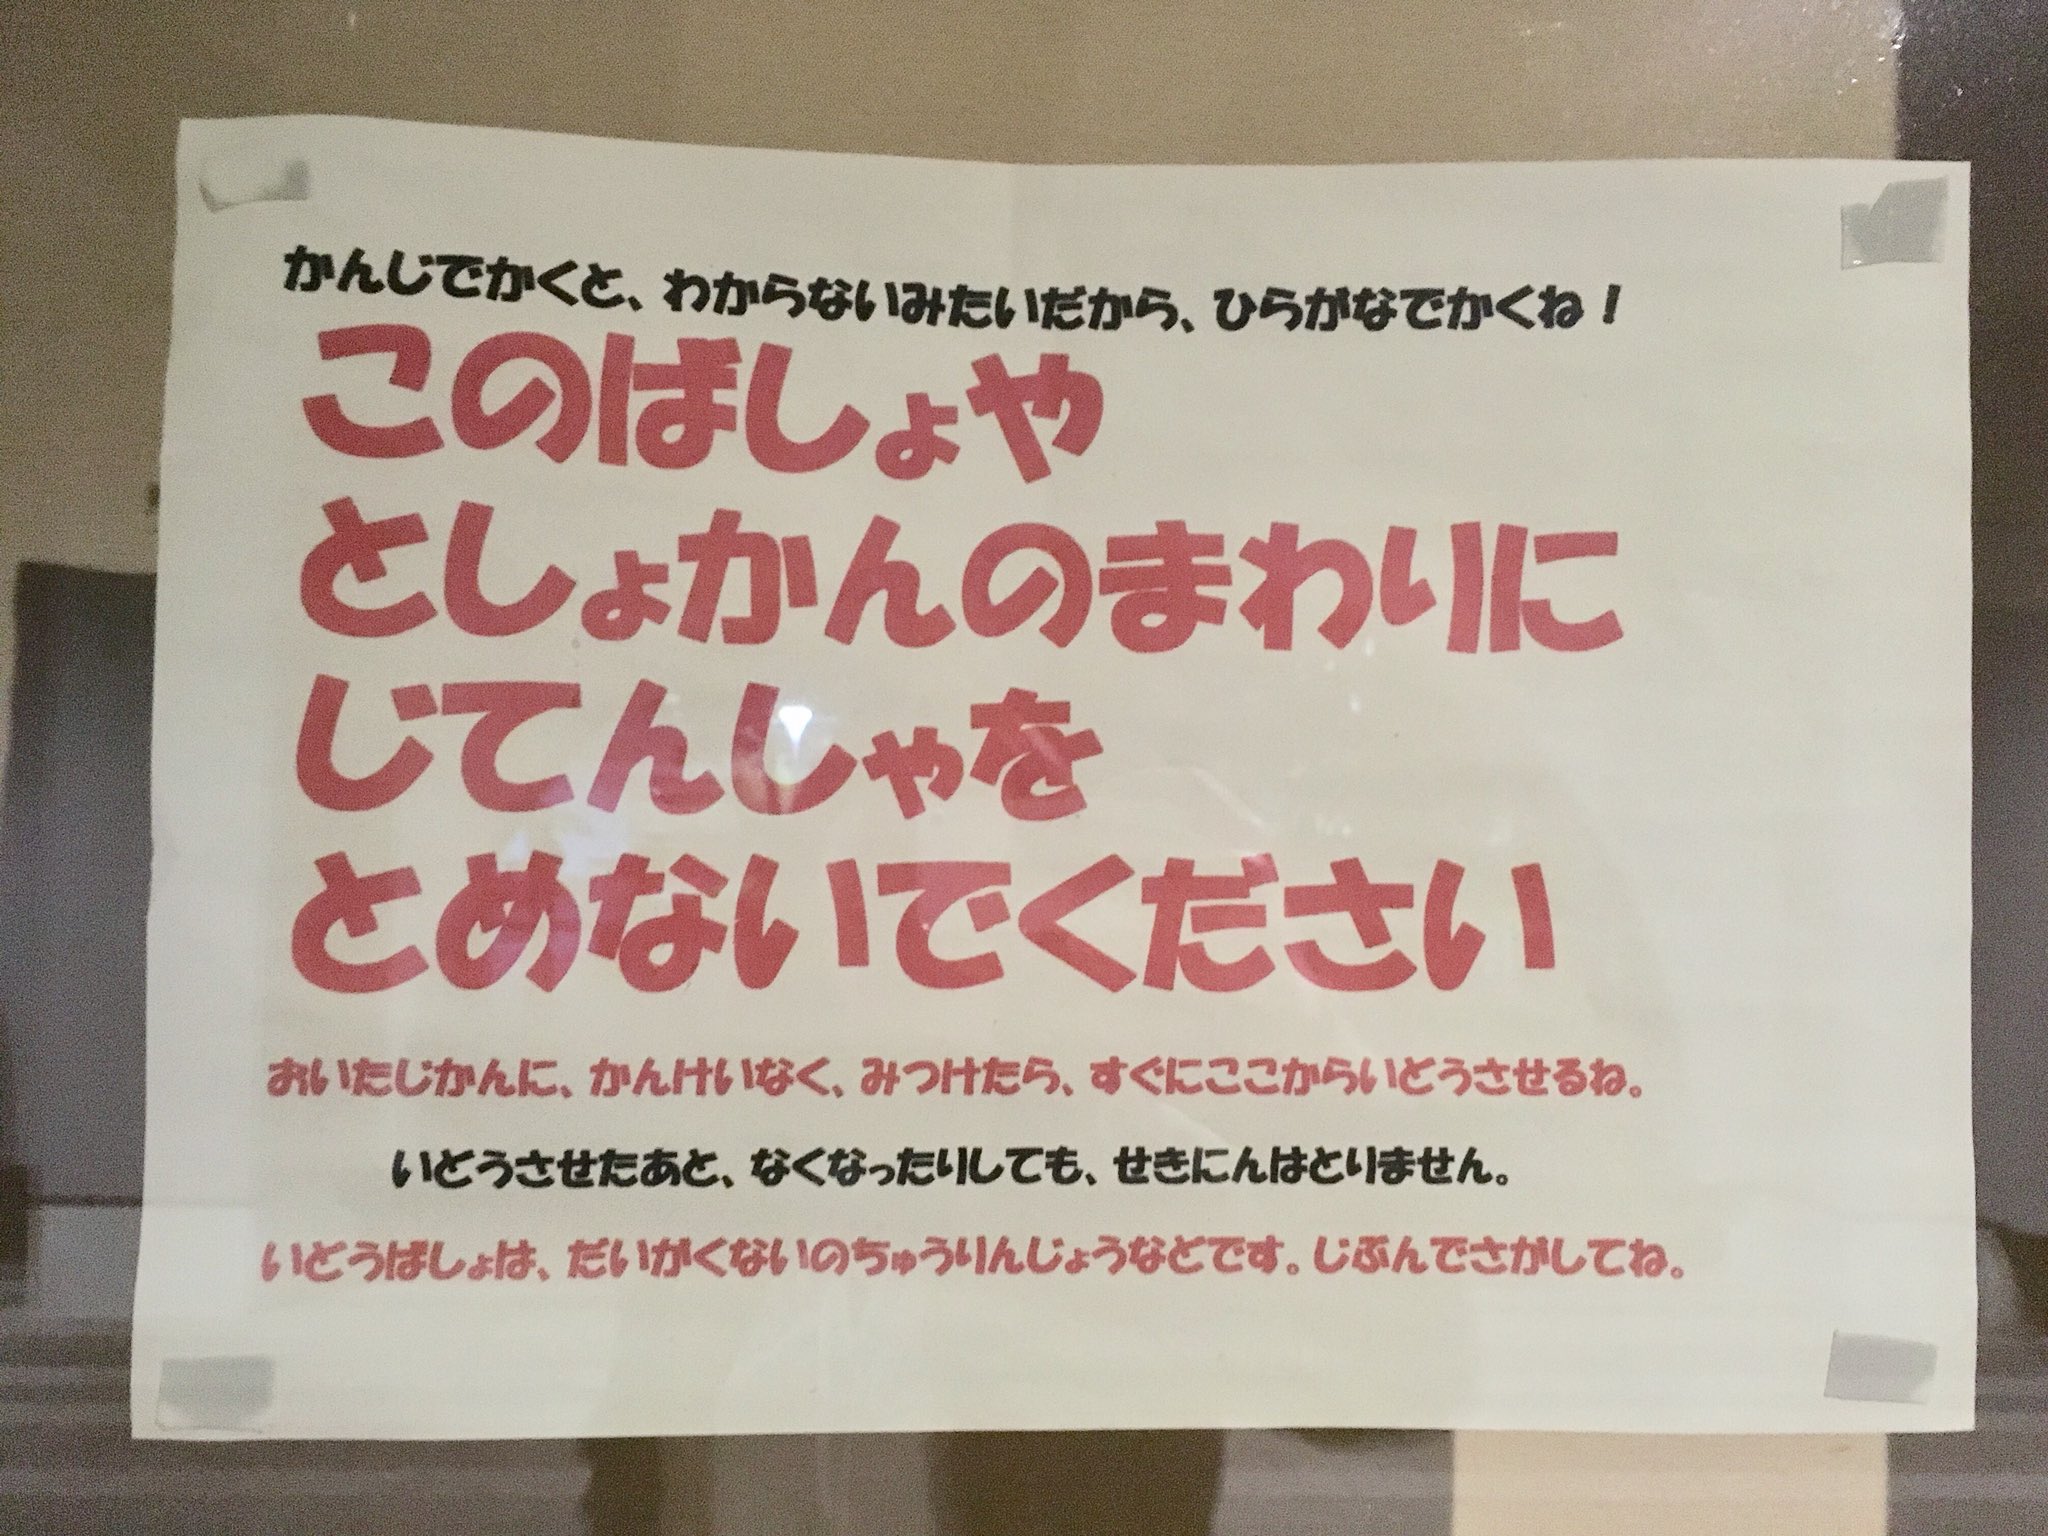 かんじでかくと、わからないみたいだから、ひらがなでかくね！
このばしょや
としょかんのまわりに
じてんしゃを
とめないでください
おいたじかんに、かんけいなく、みつけたら、すぐにここからいどうさせるね。
いどうさせたあと、なくなったりしても、せきにんはとりません。
いどうばしょは、だいがくないのちゅうりんじょうなどです。じぶんでさがしてね。